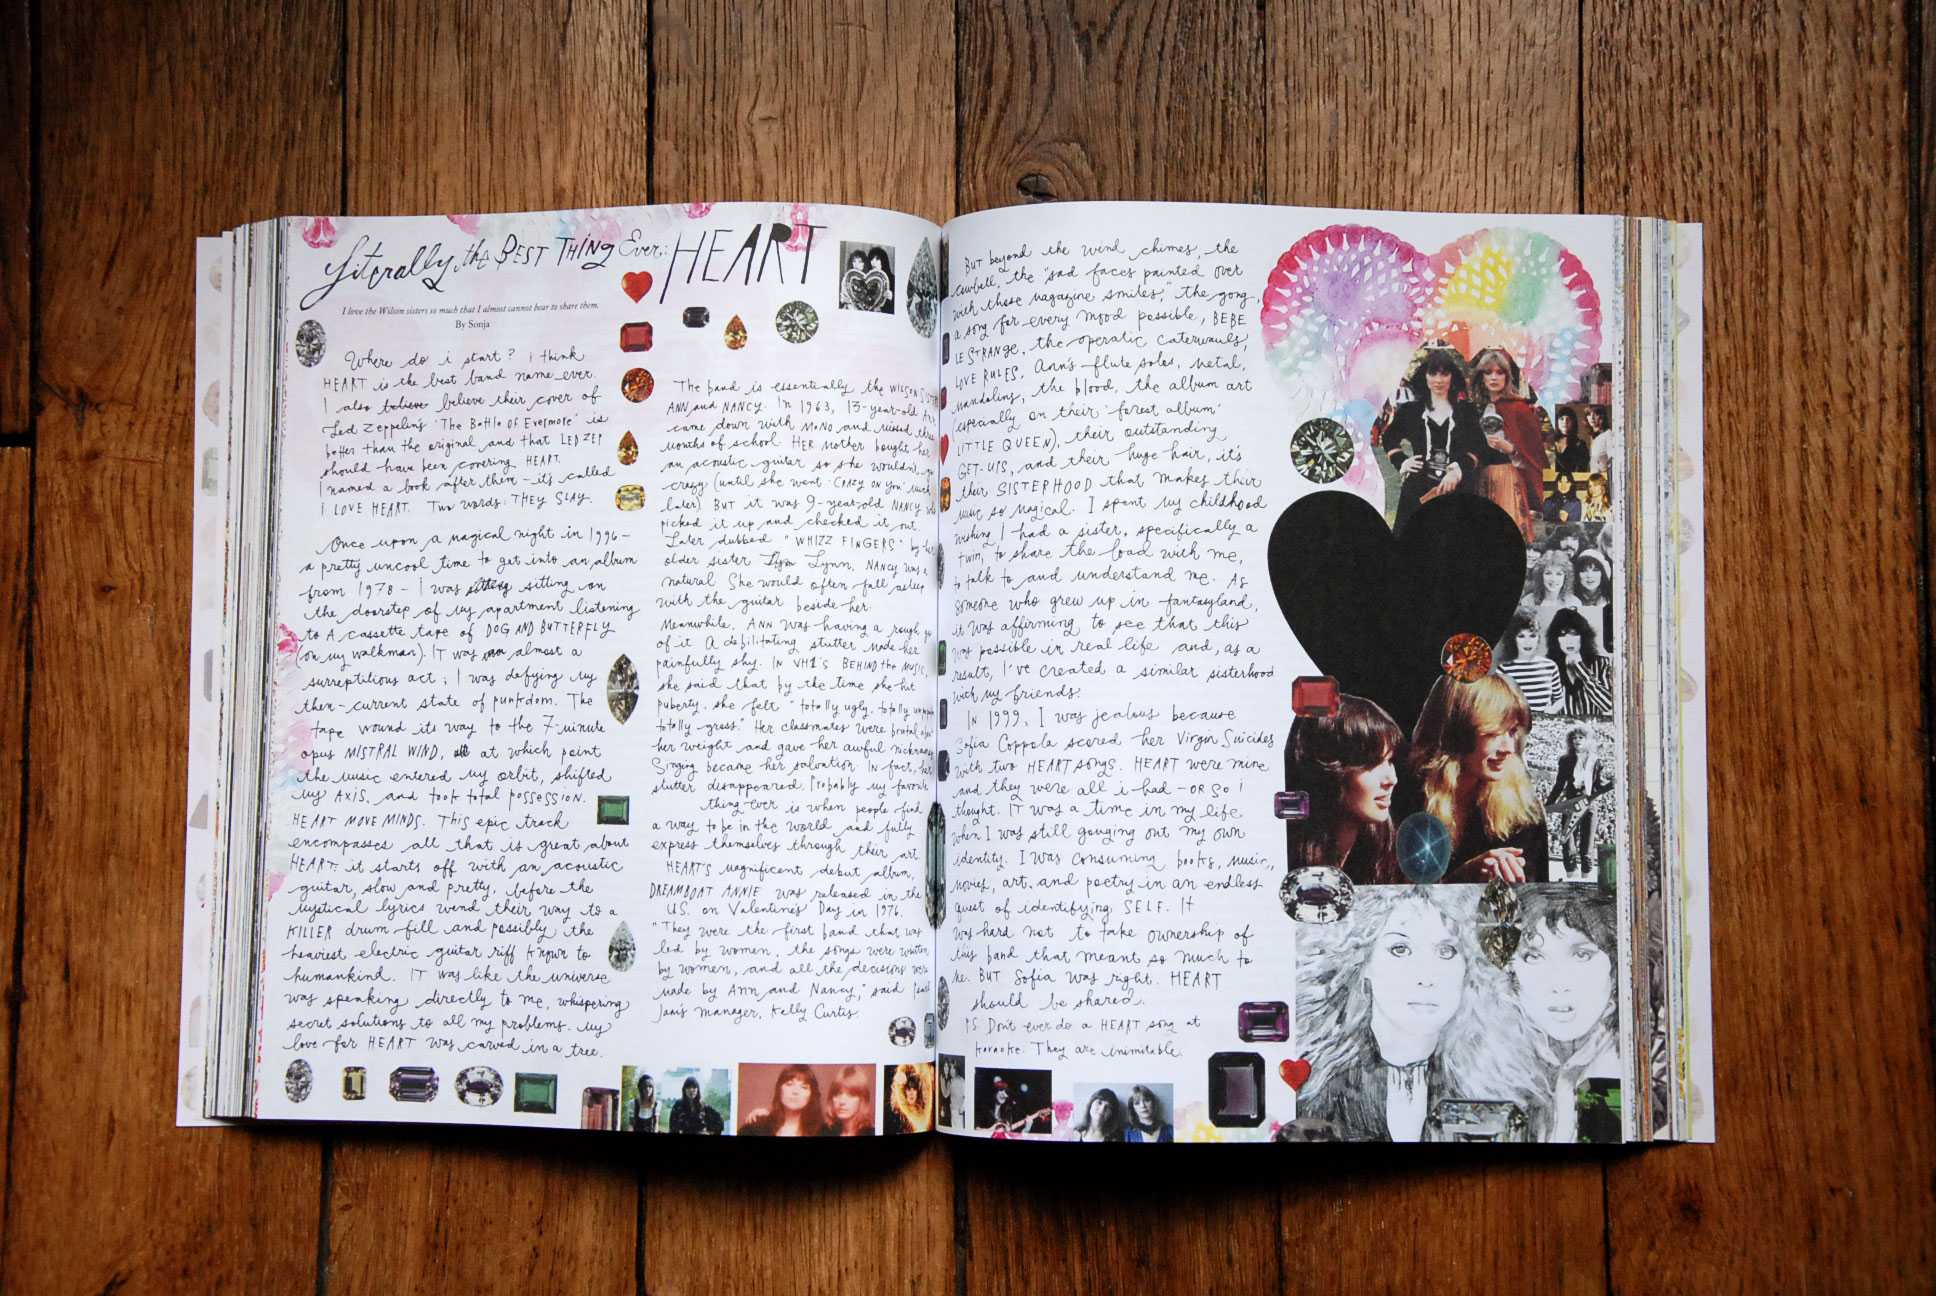 Literally the BEST THING Ever: HEART
I love the Wilson sisters so much that I almost cannot bear to share them.
By Sonja
Where do i start? I think
HEART is the best band name ever.
I also believe believe their cover of
Led Zeppelin's 'The Battle of Evermore' is
better than the original and that LED ZEP
should have been covering HEART.
I named a book after them - it's called
I LOVE HEART. Two words: THEY SLAY.
Once upon a magical night in 1996 -
a pretty uncool time to get into an album
from 1978 - I was sitting on
the doorstep of my apartment listening
to A cassette tape of DOG AND BUTTERFLY
(on my walkman). IT was almost a
surreptitious act; I was defying my
then-current state of punkdom. The
tape wound its way to the 7-minute
opus MISTRAL WIND, at which point
the music entered my orbit, shifted
my AXIS, and took total possession.
HEART MOVE MINDS. This epic track
encompasses all that is great about
HEART: it starts off with an acoustic
guitar, slow and pretty, before the
mystical lyrics wend their way to a
KILLER drum fill and possibly the
heaviest electric guitar riff known to
humankind. IT was like the universe
was speaking directly to me, whispering
secret solutions to all my problems. My
love for HEART was carved in a tree.
The band is essentially the WILSON
ANN and NANCY. In 1963, 13-year-old Ann
came down with MONO and missed three
months of school. HER mother bought her
an acoustic guitar so she wouldn't go
crazy (until she went 'CRAZY ON YOU' much
later). BUT it was 9-year-old NANCY who
picked it up and checked it out.
Later dubbed "WHIZZ FINGERS" by her
older sister Lynn, NANCY was a
natural. She would often fall asleep
with the guitar beside her.
Meanwhile, ANN was having a rough go
of it. A debilitating stutter made her
painfully shy. IN VH1'S BEHIND the MUSIC,
she said that by the time she hit
puberty, she felt "totally ugly, totally
totally gross." Her classmates were brutal about
her weight and gave her awful nicknames.
Singing became her salvation. IN fact, her
stutter disappeared. Probably my favorite
thing ever is when people find
a way to be in the world and fully
express themselves through their art.
HEART'S magnificent debut album,
DREAMBOAT ANNIE was released in the
U.S. on Valentine's Day in 1976.
"They were the first band that was
led by women, the songs were written
by women, and all the decisions were
made by Ann and Nancy," said
manager, Kelly Curtis.
BUT beyond the wind chimes, the
cowbell, the "sad faces painted over
with those magazine smiles," the gong,
a song for every mood possible, BEBE
LE STRANGE, the operatic caterwauls,
LOVE RULES, Ann's flute solos, metal,
mandolins, the blood, the album art
(especially on their 'forest album'
LITTLE QUEEN), their outstanding
GET-UPS, and their huge hair, it's
their SISTERHOOD that makes their
music so magical. I spent my childhood
wishing I had a sister, specifically a
twin, to share the load with me,
to talk to and understand me. As
someone who grew up in fantasyland,
it was affirming to see that this
was possible in real life and, as a
result, I've created a similar sisterhood
with my friends.
IN 1999, I was jealous because
Sofia Coppola scored her Virgin Suicides
with two HEART songs. HEART were mine
and they were all i had - OR SO I
thought. IT was a time in my life
when I was still gouging out my own
identity. I was consuming books, music,
movies, art, and poetry in an endless
quest of identifying SELF. It
was hard not to take ownership of
this band that meant so much to
me. BUT Sofia was right. HEART
should be shared.
PS Don't ever do a HEART song at
karaoke. They are inimitable.